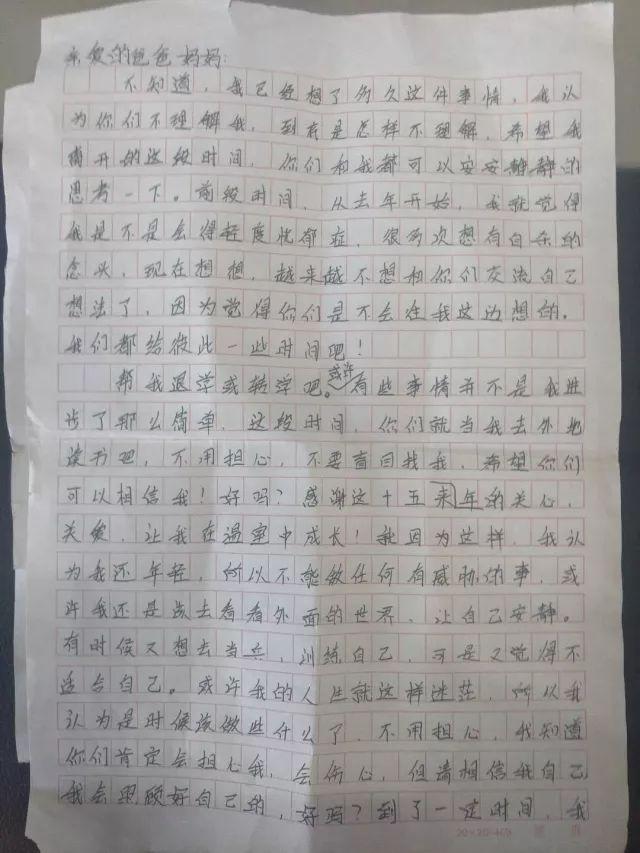 亲爱的爸爸妈妈:
不知道,我已经想了多久这件事情,我认
为你们不理解我,到底是怎样不理解,希望我
离开的这段时间,你们和我都可以安安静静的
思考一下。前段时间,从去年开始,我就觉得
我是不是会得轻度忧郁症,很多次想有自杀的
念头,现在想想,越来越不想和你们交流自己
想法了,因为觉得你们是不会在我这边想的。
我们都给彼此一些时间吧!
帮我退学或转学吧。或许有些事情并不是我进
步了那么简单,这段时间,你们就当我去外地
读书吧,不用担心,不要盲目找我,希望你们
可以相信我!好吗?感谢这十五来年的关心,
关爱,让我在温室中成长!就因为这样,我认
为我还年轻,所以不能做任何有威胁的事,或
许我还是该去看看外面的世界,让自己安静。
有时候又想去当兵,训练自己,可是又觉得不
适合自己。或许我的人生就这样迷茫,所以我
认为是时候该做些什么了,不用担心,我知道
你们肯定会担心我,会伤心,但请相信我自己
我会照顾好自己的,好吗?到了一定时间,我
20×20=400